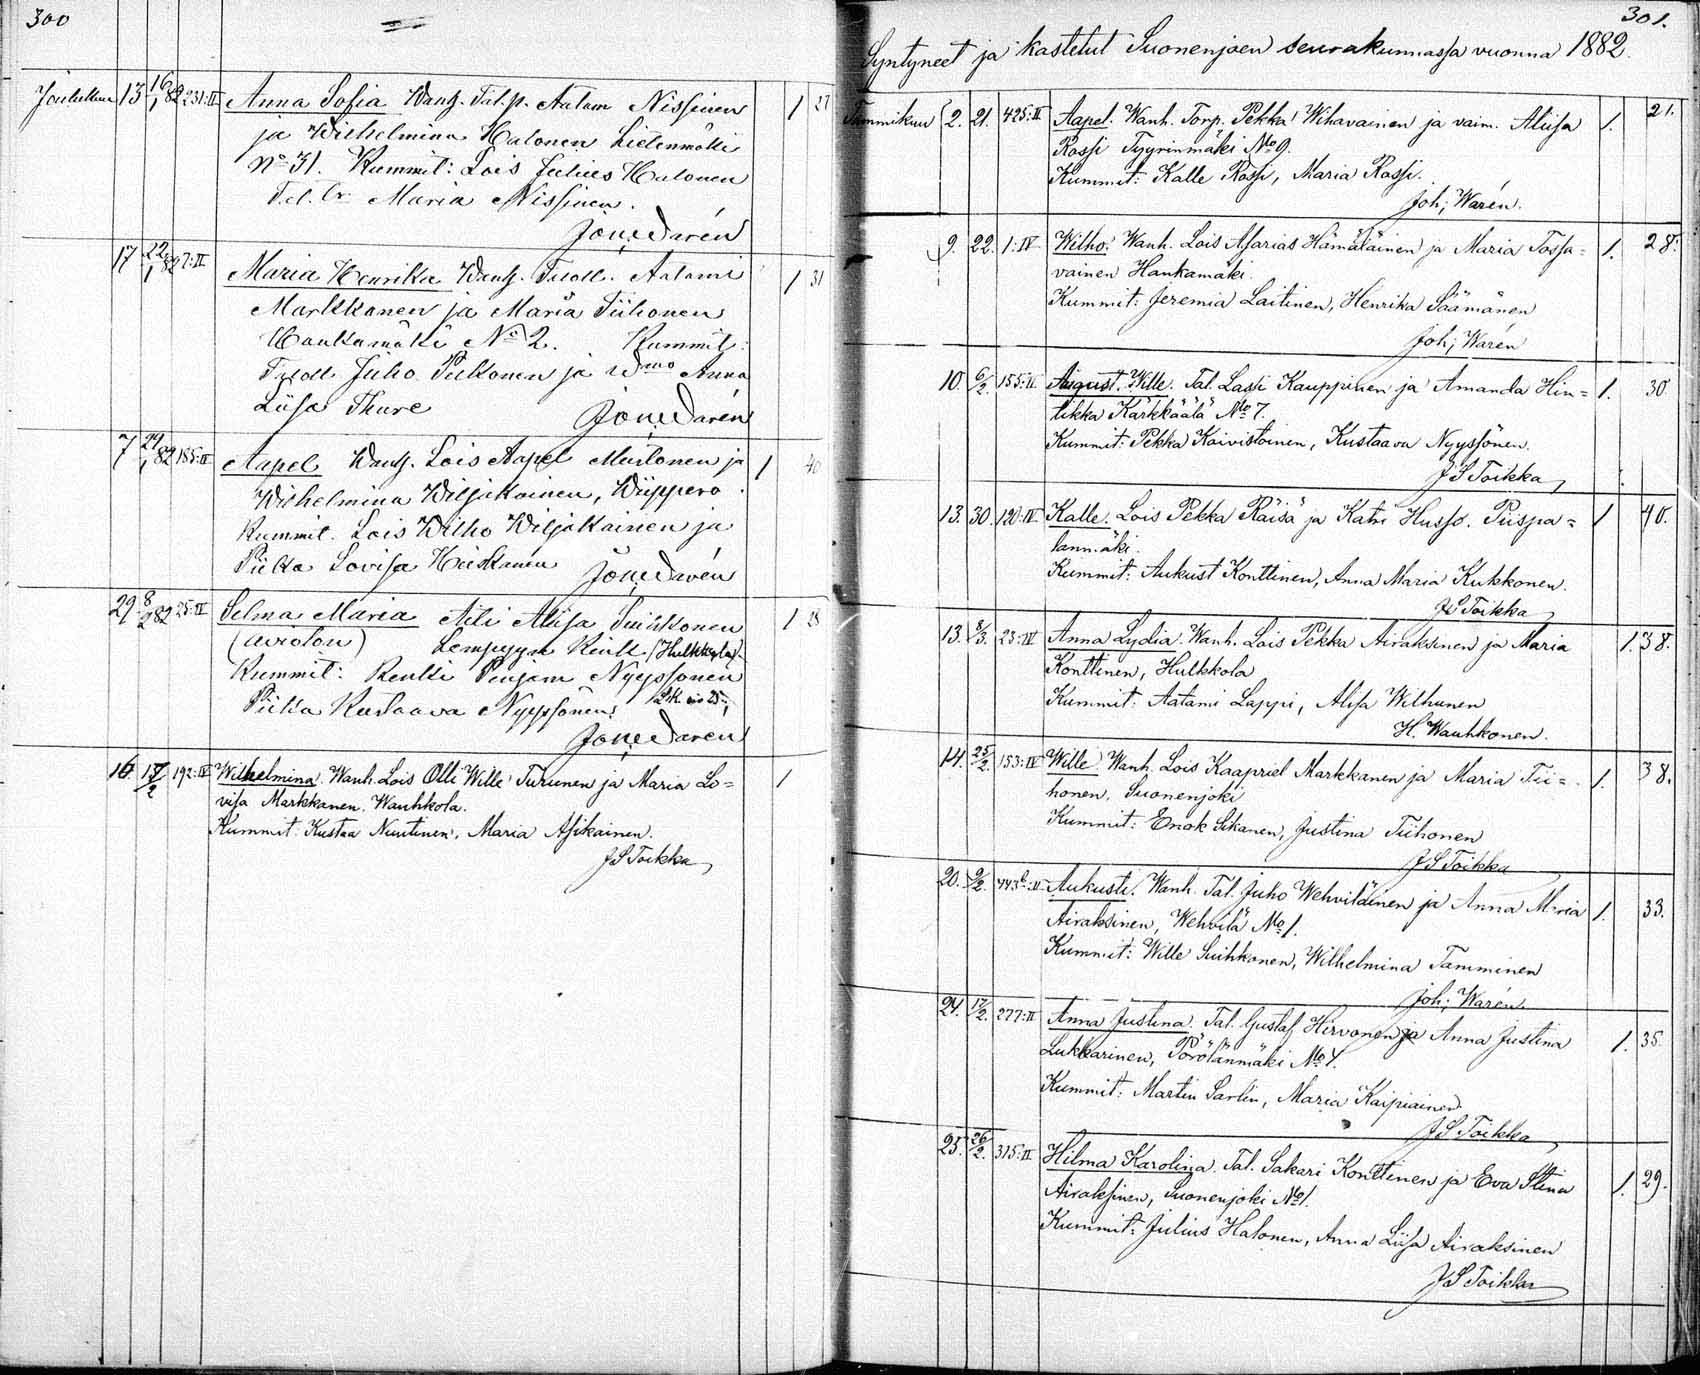 300
Joulukuu 13 16/1 82 231:II Anna Sofia Wanh. Tal. p. Aatam Nissinen 1 27
ja Wilhelmina Halonen Lietenmäki
No 31. Kummit: Lois Julius Halonen
Tal. tr. Maria Nissinen.
Joh. Warén
17 22/1 82 7:II Maria Henrika Wanh. Aatami 1 31
Markkanen ja Maria Tiihonen
Haukamäki No 2. Kummit:
Juho Pulkonen ja Anna
Liisa Thure
Joh. Warén
7 29/1 82 185:II Aapel Wanh. Lois Aapel Mustonen ja 1 40
Wilhelmina Wiljakainen, Wiippero
Kummit. Lois Wilho Wiljakainen ja
Piika Lovisa Heiskanen
Joh. Warén
29 8/2 82 25:II Selma Maria Äiti Alisa Suihkonen 1 28
(avioton) Lempyyn (Hulkkola)
Kummit: Renki Penjam Nyyssönen
Piika Kustaava Nyyssönen.
Joh. Warén
16 17/2 192:IV Wilhelmina. Wanh. Lois Olli Wille Turunen ja Maria Lo= 1
visa Markkanen. Wauhkola.
Kummit: Kustaa Nuutinen, Maria Asikainen.
J S Toikka
301.
Syntyneet ja kastetut Suonenjoen seurakunnassa vuonna 1882.
Tammikuu 2. 21. 425:II Aapel. Wanh. Torp. Pekka Wihavainen ja vaim. Aliisa 1. 21.
Rossi Tyyrinmäki No 9.
Kummit: Kalle Rossi, Maria Rossi.
Joh; Warén.
9. 22. 1:IV Wilho. Wanh. Lois Asarias Hämäläinen ja Maria Tossa= 1. 28.
vainen Hankamäki.
Kummit: Jeremia Laitinen, Henrika Säämänen
Joh; Warén
10. 6/2. 155:II August Wille. Tal. Lassi Kauppinen ja Amanda Hin= 1. 30
tikka Kärkkäälä No 7.
Kummit: Pekka Koivistoinen, Kustaava Nyyssönen.
J S Toikka
13. 30. 120:IV Kalle. Lois Pekka Räisä ja Katri Husso. Piispa= 1 40.
lanmäki.
Kummit: Aukust Konttinen, Anna Maria Kukkonen.
J S Toikka
13. 8/3. 23:IV Anna Lydia. Wanh. Lois Pekka Airaksinen ja Maria 1. 38.
Konttinen, Hulkkola
Kummit: Aatami Lappi, Alisa Wilhunen
H. Wauhkonen.
14. 25/2. 153:IV Wille. Wanh. Lois Kaapriel Markkanen ja Maria Tii= 1. 38.
honen. Suonenjoki
Kummit: Enok Sikanen, Justina Tiihonen
J S Toikka
20. 9/2. 443b:II Aukusti. Wanh. Tal. Juho Wehviläinen ja Anna Maria 1. 33.
Airaksinen, Wehvilä No 1.
Kummit: Wille Suihkonen, Wilhelmina Tamminen
Joh; Warén.
24. 12/2. 277:II Anna Justina. Tal. Gustaf Hirvonen ja Anna Justina 1. 35.
Lukkarinen, Pörölänmäki No 4.
Kummit: Martin Sarlin, Maria Kaipiainen.
J S Toikka
25. 26/2. 315:II Hilma Karolina. Tal. Sakari Konttinen ja Eva Stina 1. 29.
Airaksinen, Suonenjoki No 1.
Kummit: Julius Halonen, Anna Liisa Airaksinen
J S Toikka